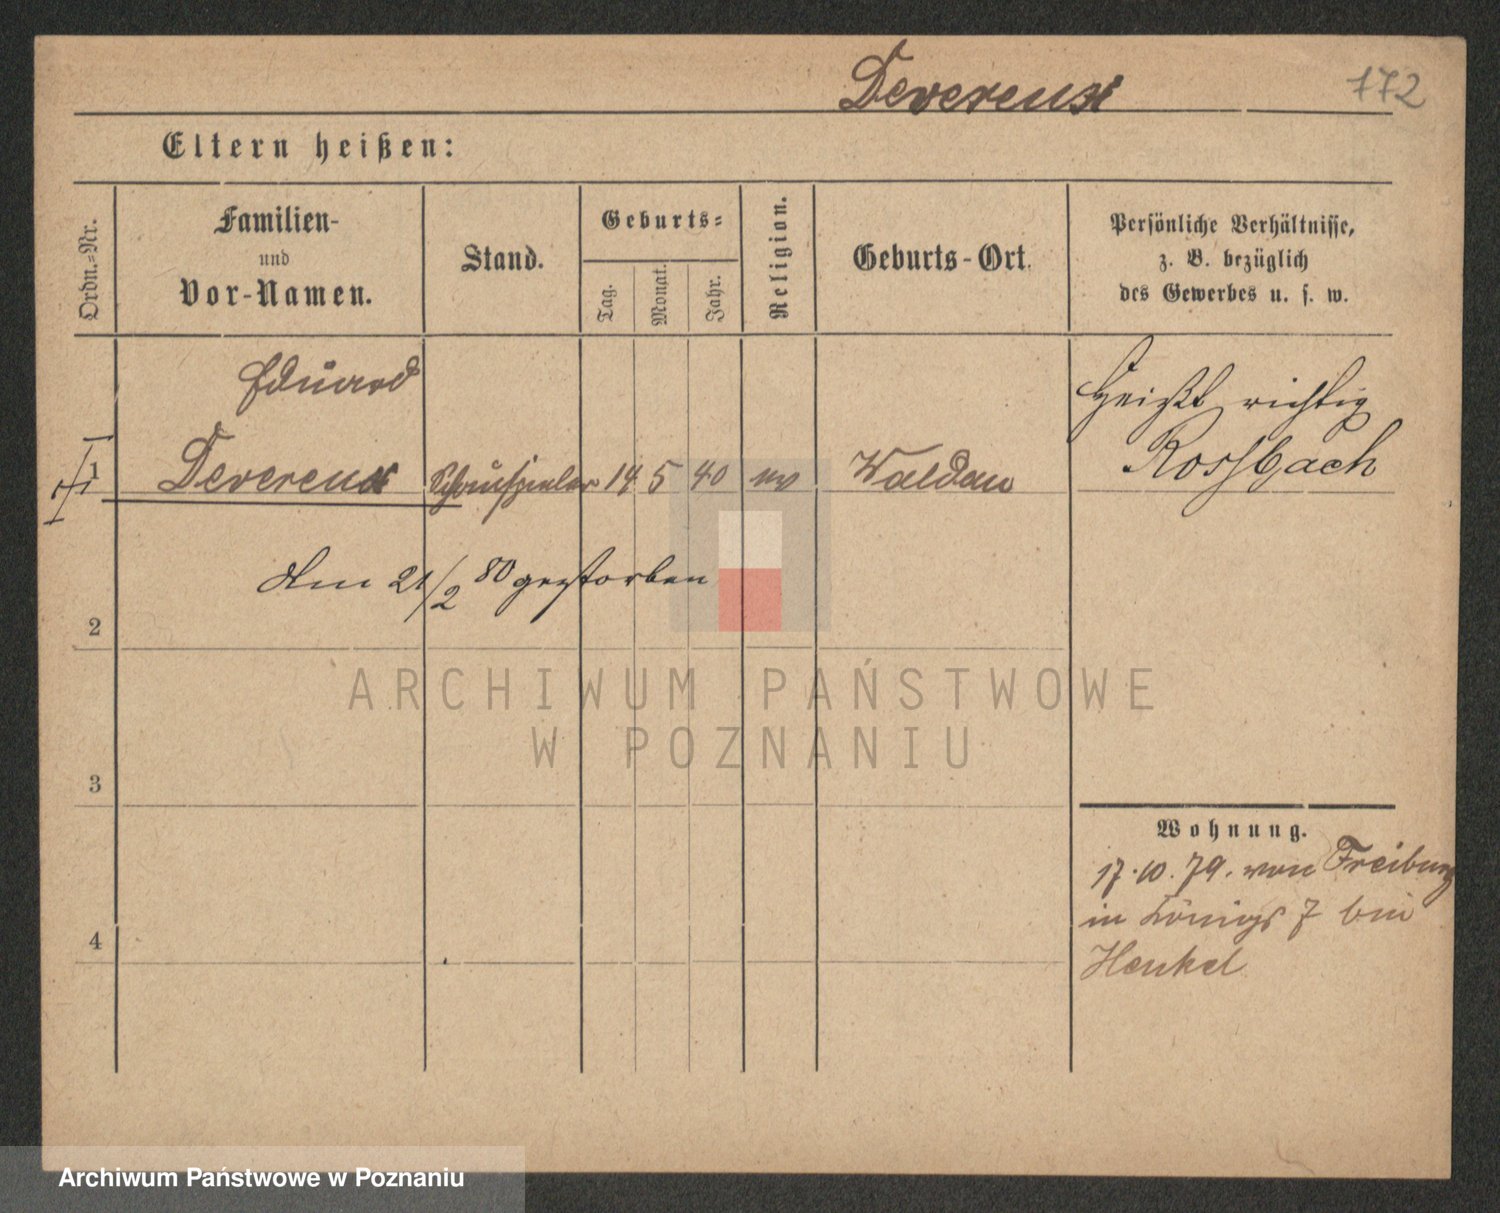 Devereux
172
Eltern heißen:
Ordn.=Nr.
Familien-
und
Vor-Namen.
Stand.
Geburts=
Tag.
Monat.
Jahr.
Religion.
Geburts-Ort.
Persönliche Verhältnisse,
z. B. bezüglich
des Gewerbes u. s. w.
Eduard
1 Devereux Schauspieler 14 5 40 ev Waldau
Heißt richtig
Rossbach
Am 21/2 80 gestorben
2
ARCHIWUM PAŃSTWOWE
W POZNANIU
3
Wohnung.
17.10.79. von Freiburg
in Königs 7 bei
Henkel
4
Archiwum Państwowe w Poznaniu